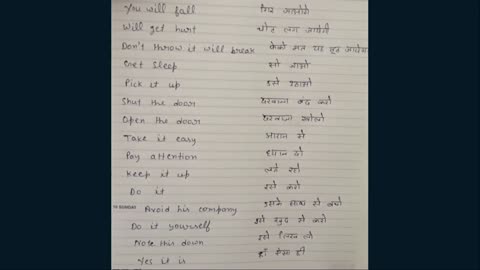 You will fall गिर जाओगे
Will get hurt चोट लग जायेगी
Don't throw it will break फेको मत यह टूट जायेगा
Get Sleep सो जाओ
Pick it up इसे उठाओ
Shut the door दरवाजा बंद करो
Open the door दरवाजा खोलो
Take it easy आराम से
Pay attention ध्यान दो
Keep it up लगे रहो
Do it इसे करो
Avoid his company उसके साथ से बचो
Do it yourself इसे खुद से करो
Note this down इसे लिख लो
Yes it is हाँ ऐसा ही